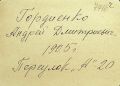 Гордиенко
Андрей Дмитриевич
1905г.
Переулок, № 20